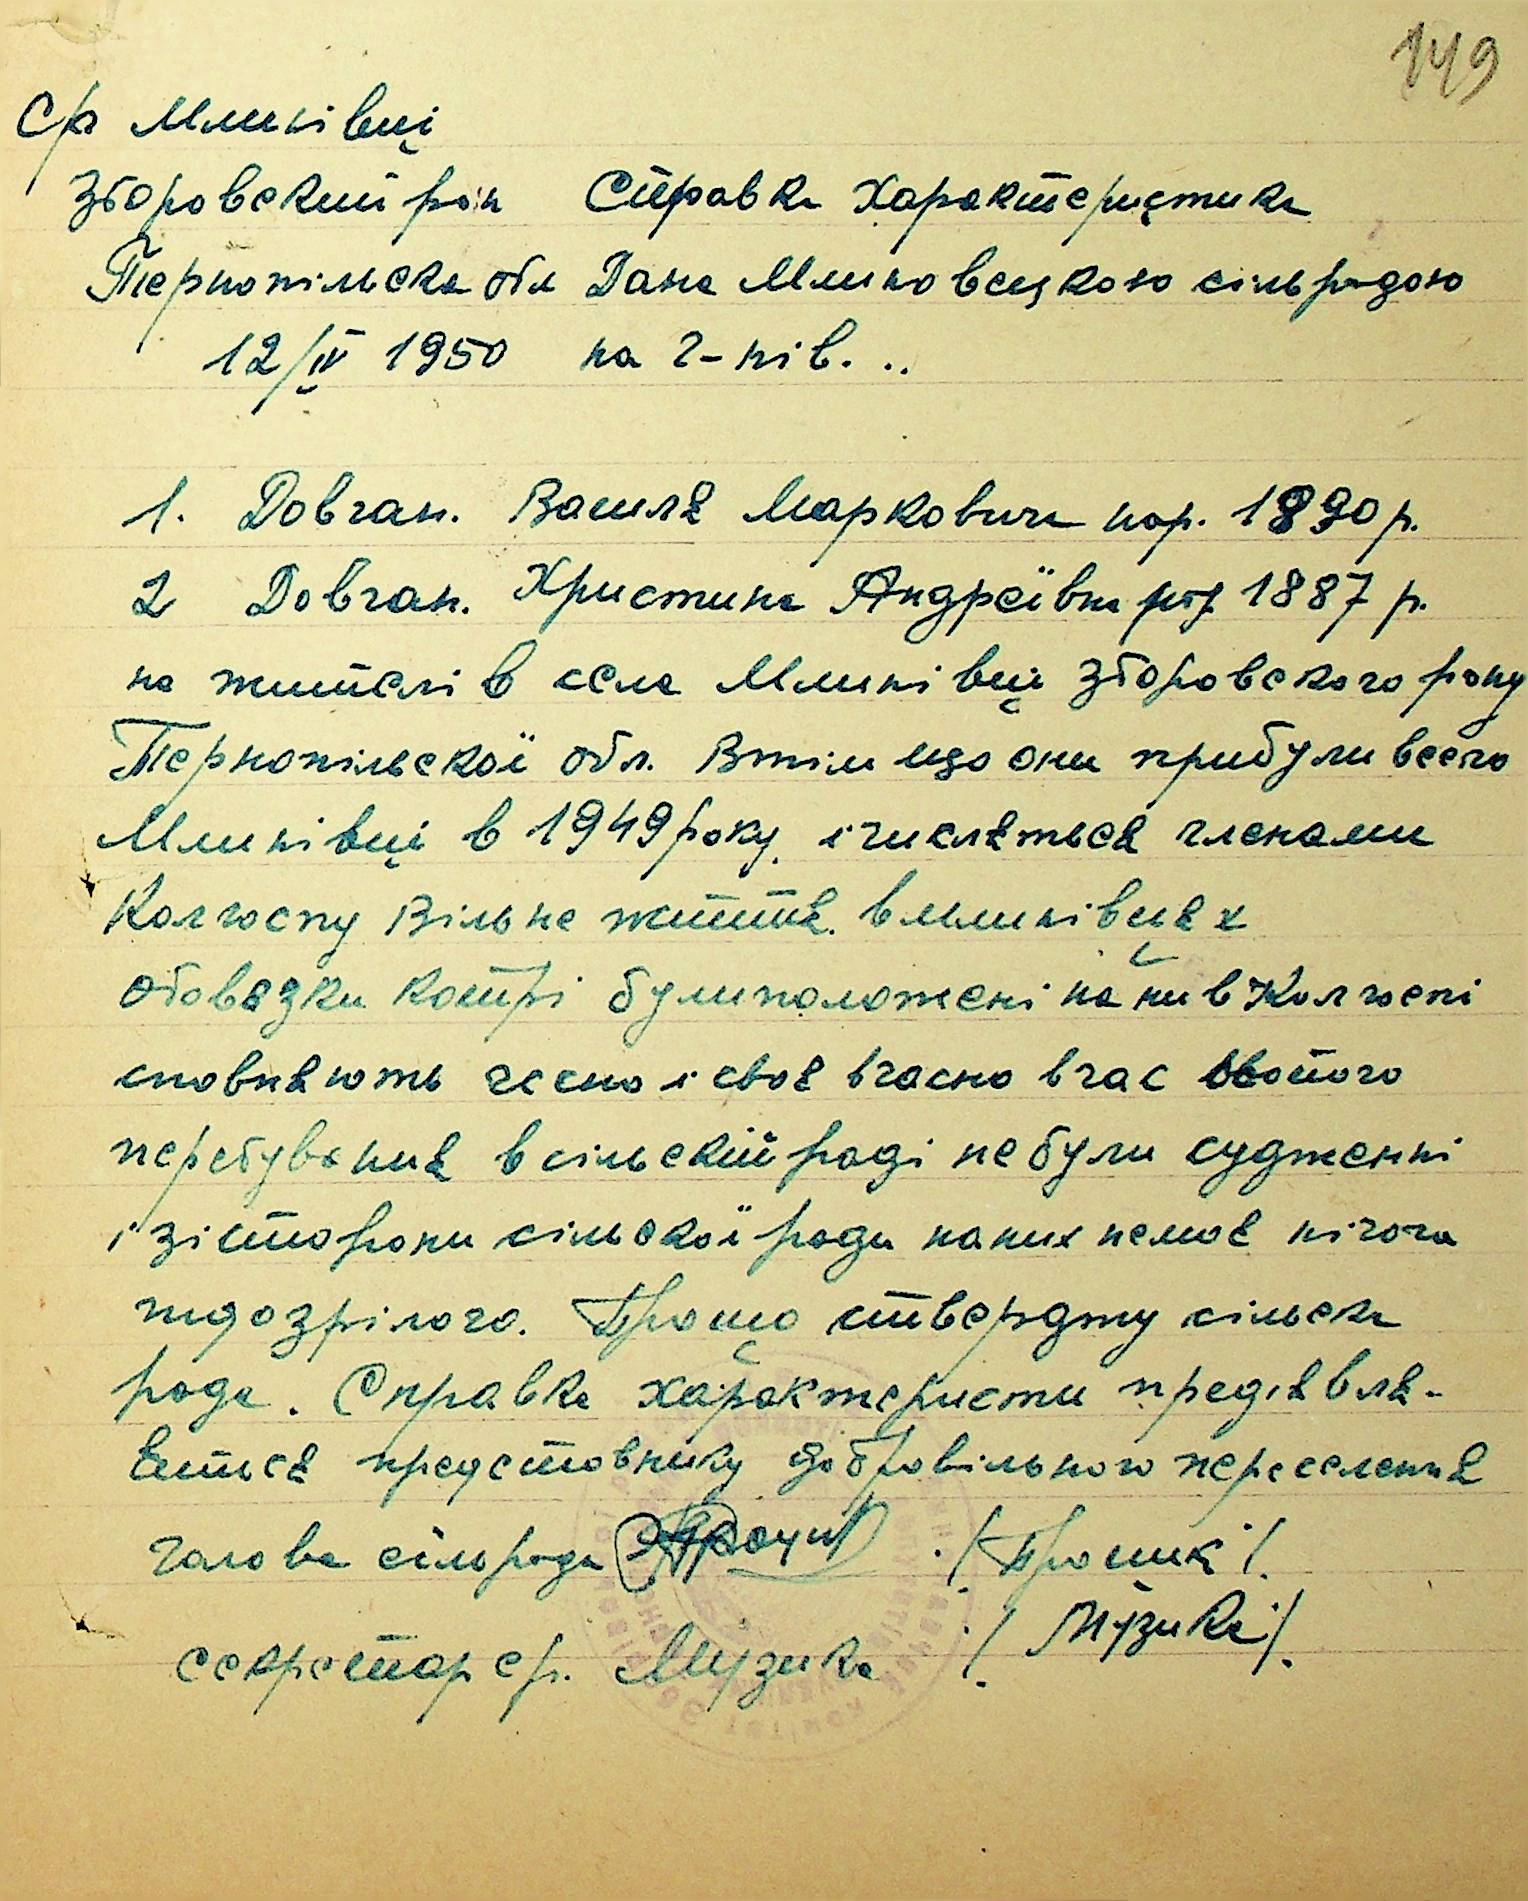 149
С/р Млинівці
Зборовский рон Справка Характеристика
Тернопільска обл Дана Млиновецкою сільрадою
12/IV 1950 на г-нів. ..
1. Довган. Василя Марковича нар. 1890 р.
2 Довган. Христина Андреївна 1887 р.
на жителів села Млинівці Зборовского рону
Тернопільскої обл. Втім що они прибули всело
Млинівці в 1949 року, і числяться членами
Колгоспу Вільне життя. в Млинівцях
обовязки котрі були положені на них в Колгоспі
сповняють чесно і своє вчасно в час свотого
перебування в сільскій раді не були судженні
і зі сторони сільскої ради на них немає нічого
підозрілого. Про що стверджу сільска
рада. Справка характеристи предявля-
еться представнику добровільного переселення
голова сільради /Процик/.
секретар с/р. Музика /Музика/.